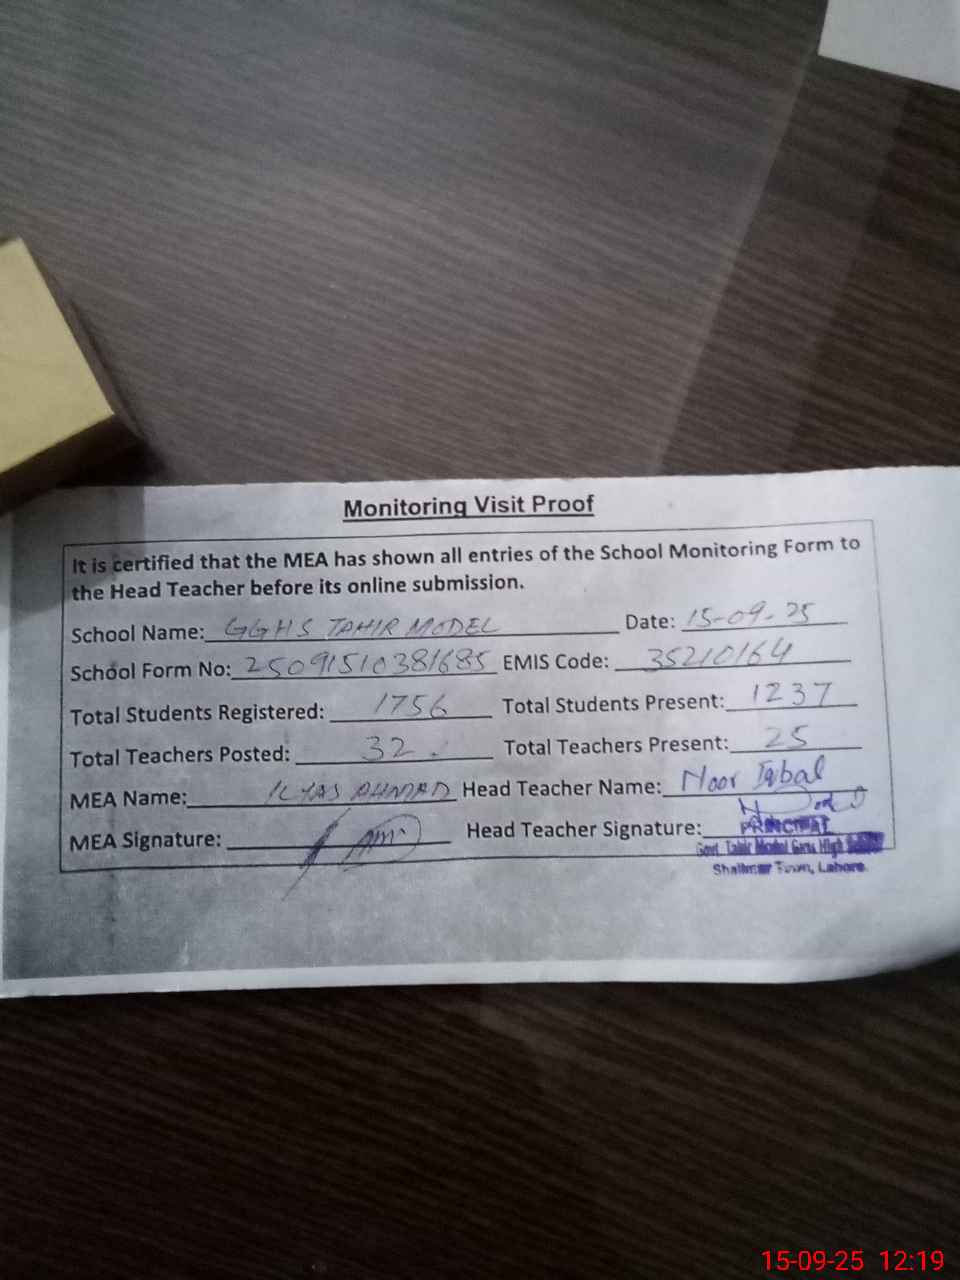 Monitoring Visit Proof
It is certified that the MEA has shown all entries of the School Monitoring Form to
the Head Teacher before its online submission.
School Name: GGHS TAHIR MODEL Date: 15-09-25
School Form No: 25091510381685 EMIS Code: 35210164
Total Students Registered: 1756 Total Students Present: 1237
Total Teachers Posted: 32 Total Teachers Present: 25
MEA Name: ILYAS AHMAD Head Teacher Name: Noor Iqbal
MEA Signature: Head Teacher Signature:
PRINCIPAL
Govt. Tahir Model Girls High
Shalimar Town, Lahore.
15-09-25 12:19